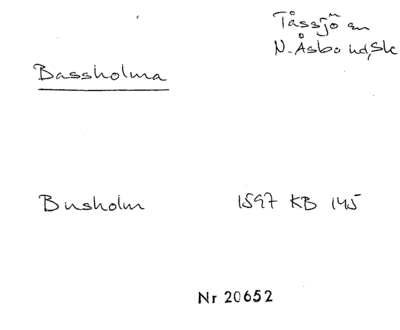 Tåssjö sn
N. Åsbo hd, Sk
Bassholma
Busholm 1597 KB 145
Nr 20652